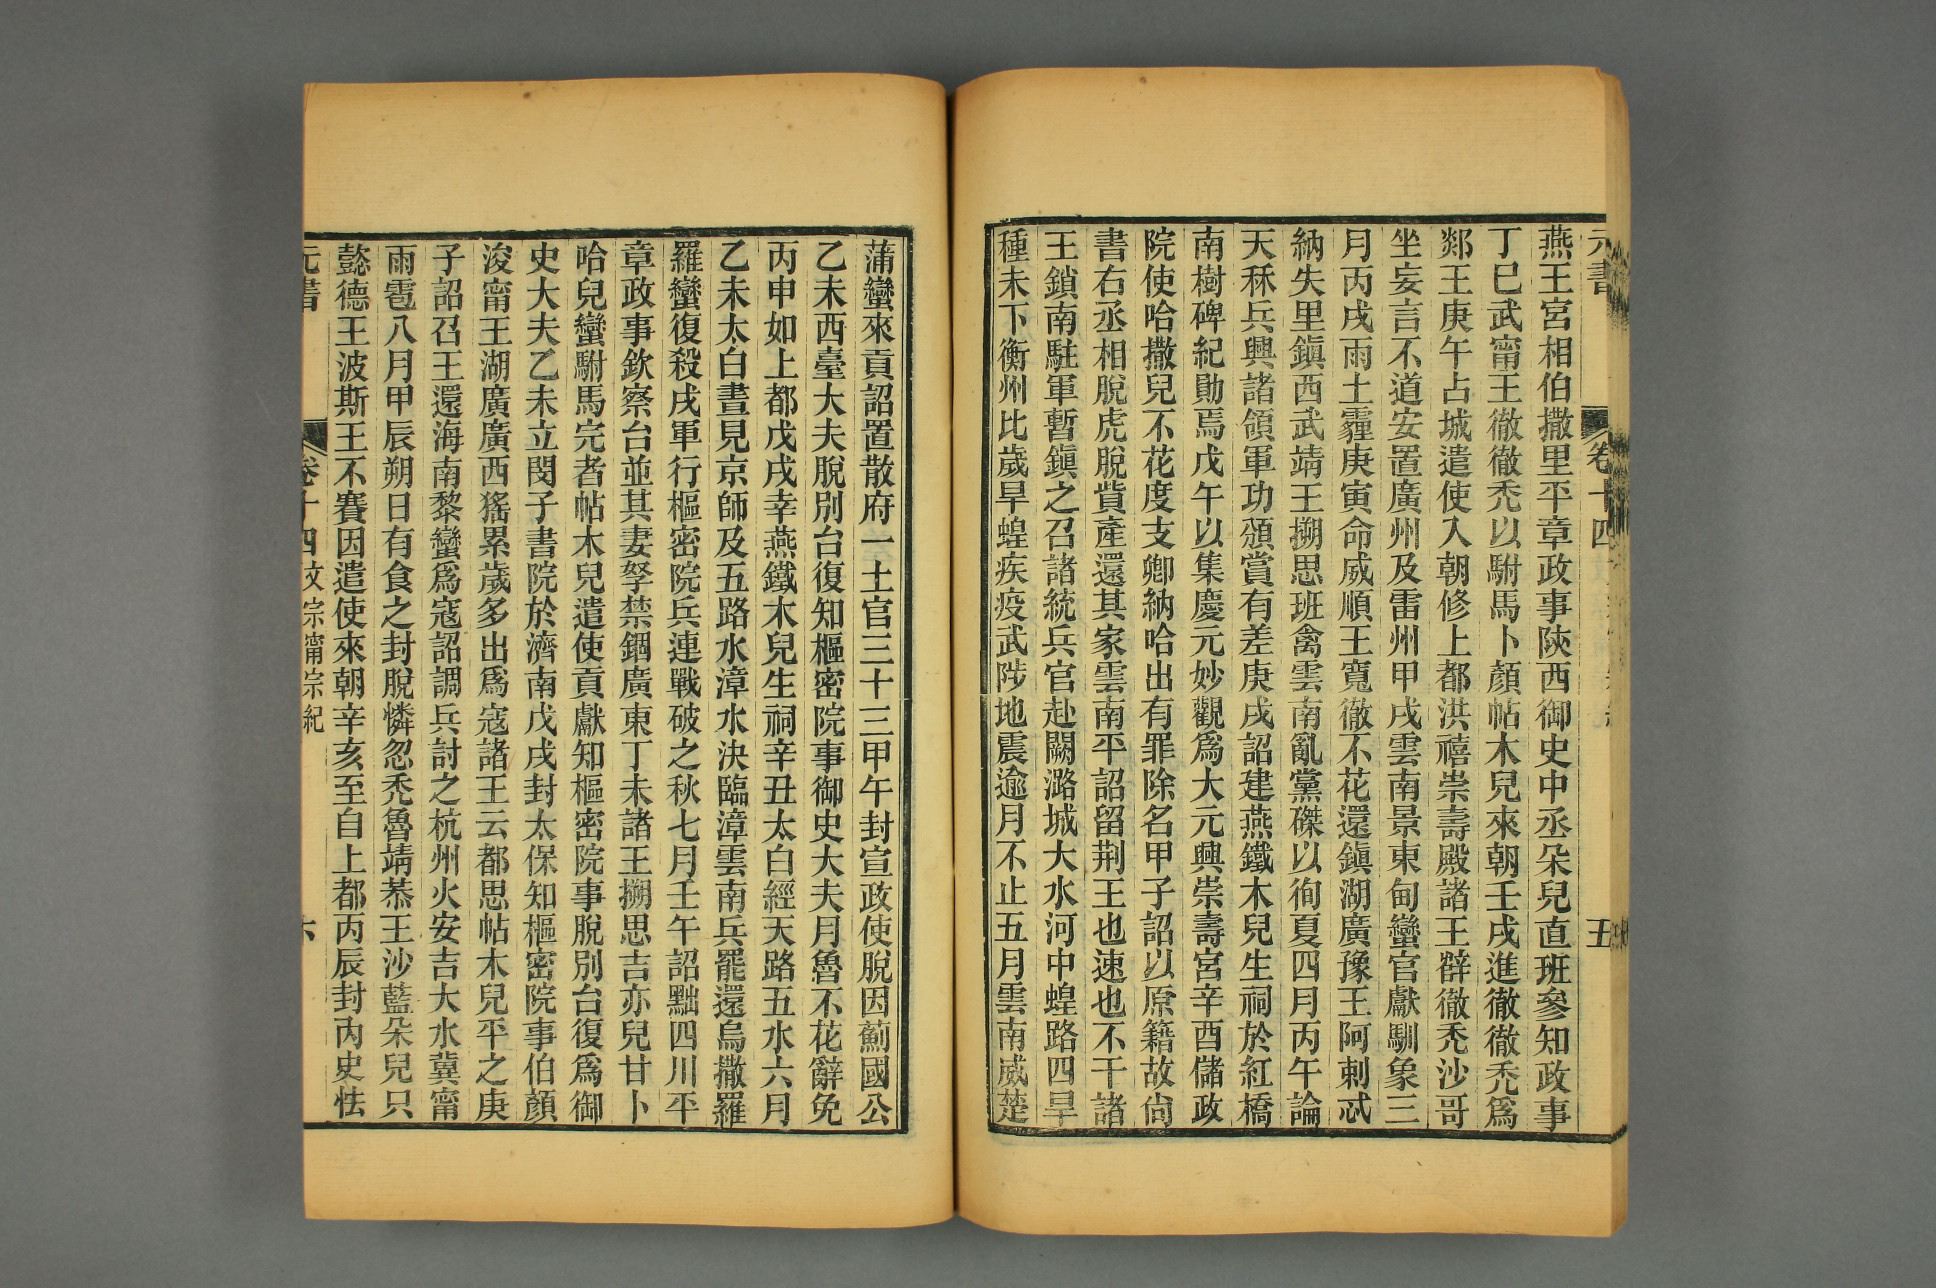 元書
卷十四
五
燕王宮相伯撒里平章政事陝西御史中丞朵兒直班參知政事
丁巳武甯王徹徹禿以駙馬卜顏帖木兒來朝壬戌進徹徹禿爲
郯王庚午占城遣使入朝修上都洪禧崇壽殿諸王辥徹禿沙哥
坐妄言不道安置廣州及雷州甲戌雲南景東甸蠻官獻馴象三
月丙戌雨土霾庚寅命威順王寬徹不花還鎭湖廣豫王阿剌忒
納失里鎭西武靖王搠思班禽雲南亂黨磔以徇夏四月丙午論
天秝兵興諸領軍功頒賞有差庚戌詔建燕鐵木兒生祠於紅橋
南樹碑紀勛焉戊午以集慶元妙觀爲大元興崇壽宮辛酉儲政
院使哈撒兒不花度支卿納哈出有罪除名甲子詔以原籍故尙
書右丞相脫虎脫貲產還其家雲南平詔留荆王也速也不干諸
王鎖南駐軍暫鎭之召諸統兵官赴闕潞城大水河中蝗路四旱
種未下衡州比歲旱蝗疾疫武陟地震逾月不止五月雲南威楚
蒲蠻來貢詔置散府一土官三十三甲午封宣政使脫因薊國公
乙未西臺大夫脫別台復知樞密院事御史大夫月魯不花辭免
丙申如上都戊戌幸燕鐵木兒生祠辛丑太白經天路五水六月
乙未太白晝見京師及五路水漳水決臨漳雲南兵罷還烏撒羅
羅蠻復殺戍軍行樞密院兵連戰破之秋七月壬午詔黜四川平
章政事欽察台並其妻孥禁錮廣東丁未諸王搠思吉亦兒甘卜
哈兒蠻駙馬完者帖木兒遣使貢獻知樞密院事脫別台復爲御
史大夫乙未立閔子書院於濟南戊戌封太保知樞密院事伯顏
浚甯王湖廣廣西猺累歲多出爲寇諸王云都思帖木兒平之庚
子詔召王還海南黎蠻爲寇詔調兵討之杭州火安吉大水冀甯
雨雹八月甲辰朔日有食之封脫憐忽禿魯靖恭王沙藍朵兒只
懿德王波斯王不賽因遣使來朝辛亥至自上都丙辰封丙史怯
元書
卷十四
文宗甯宗紀
六